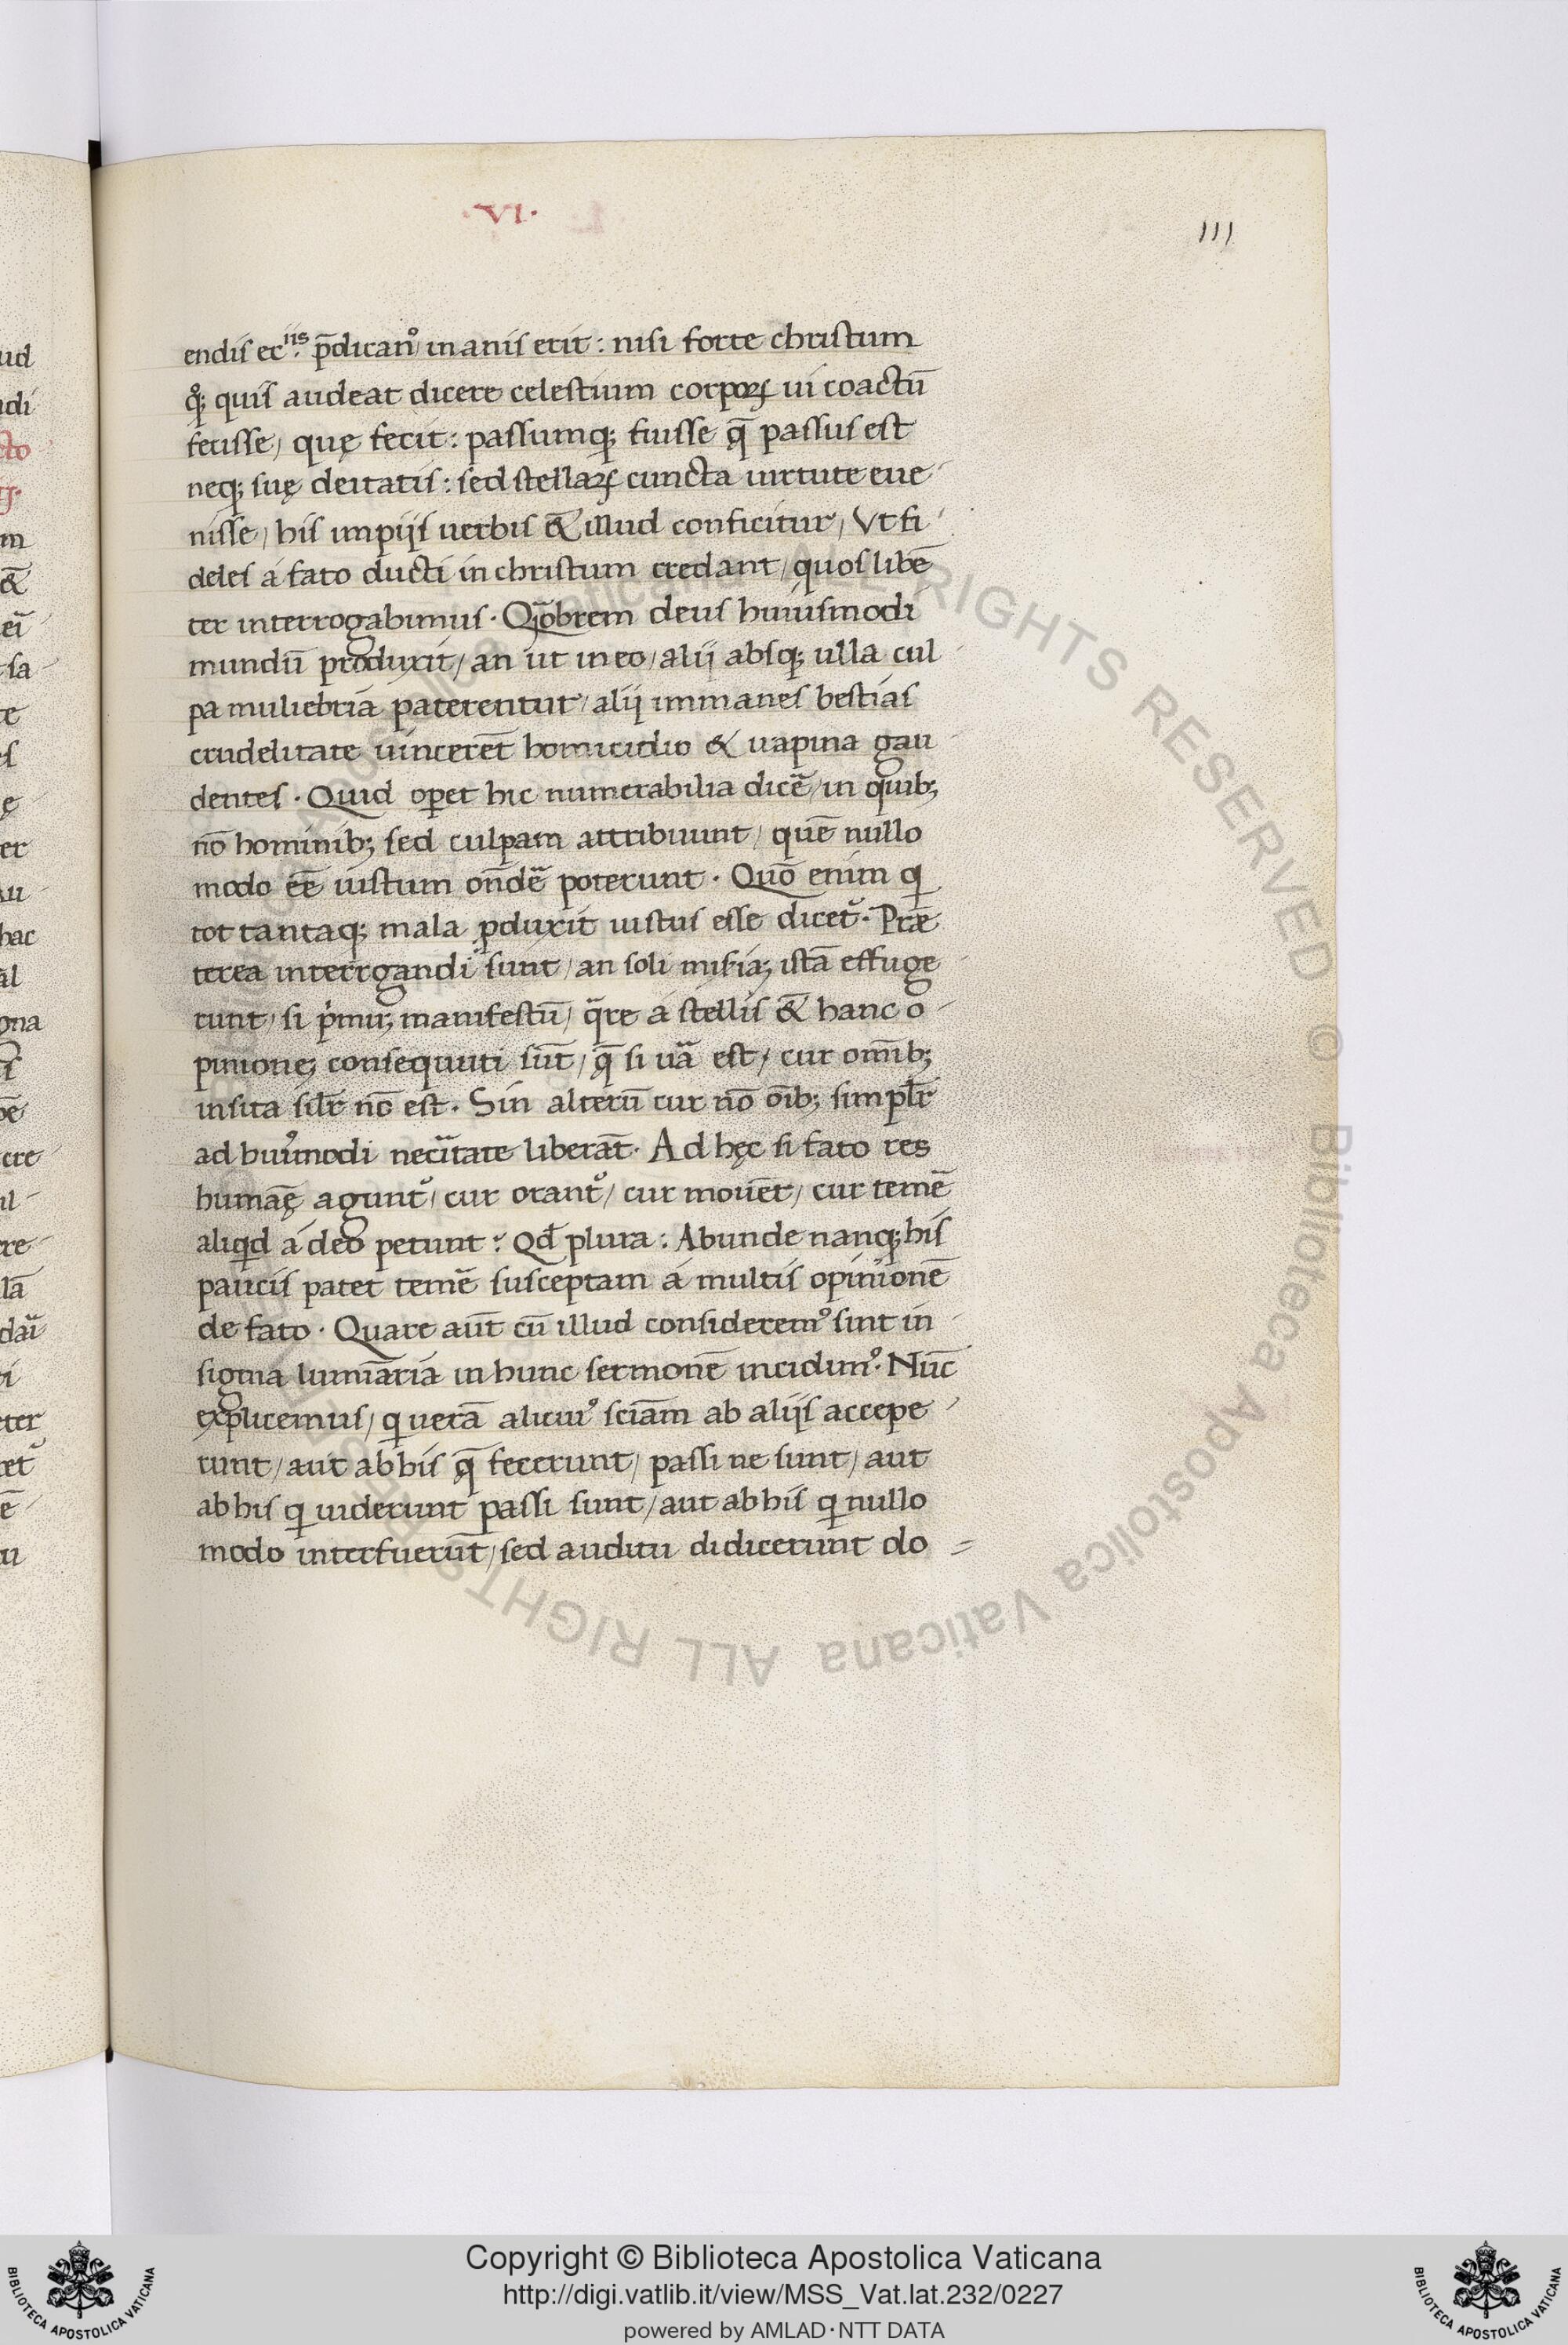 ·VI·
111
endis ec iis: p̄dicanꝰ, inanis erit: nisi forte christum
qꝫ quis audeat dicere celestium corporꝝ ui coactū
fecisse, quę fecit: passumqꝫ fuisse q̄ passus est
neqꝫ suę deitatis: sed stellaꝝ cuncta uirtute eue-
nisse, his impijs uerbis & illud conficitur, Vt fi-
deles á fato ducti in christum credant, quos libē
ter interrogabimus. Qāobrem deus huiusmodi
mundū produxit, an ut in eo, alij absqꝫ ulla cul-
pa muliebria paterentur, alij immanes bestias
crudelitate uincerēt homicidio & rapina gau-
dentes. Quid oꝑet hic numerabilia dicē, in quibꝫ
nō hominibꝫ sed culpam attribuunt, quē nullo
modo eē iustum onđē poterunt. Quō enim q
tot tantaqꝫ mala ꝓduxit iustus esse dicet᷑. Præ
terea interrgandi sunt, an soli misiaꝫ istā effuge-
runt, si pͥmuꝫ manifestū, q̄re á stellis & hanc o-
pinioneꝫ consequuti sūt, q̄ si uā est, cur omībꝫ
insita silr̄ nō est. Sin alterū cur nō oībꝫ simplr̄
ad huiꝰmodi necīitate liberāt. Ad hęc si fato res
humāę agunt᷑, cur orant᷑, cur mouēt, cur temē
aliqd á deo petunt? Qđ plura: Abunde nanqꝫ his
paucis patet temē susceptam á multis opinionē
de fato. Quare aūt cū illud consideremꝰ sint in-
signa lumīaria in hunc sermonē incidimꝰ. Nūc
explicemus, q uerā alicuiꝰ sciām ab alijs accepe-
runt, aut ab his q̄ fecerunt, passi ne sunt, aut
ab his q uiderunt passi sunt, aut ab his q nullo
modo interfuerūt, sed auditu didicerunt do=
ALL RIGHTS RESERVED © Biblioteca Apostolica Vaticana
Copyright © Biblioteca Apostolica Vaticana
http://digi.vatlib.it/view/MSS_Vat.lat.232/0227
powered by AMLAD·NTT DATA
BIBLIOTECA APOSTOLICA VATICANA
BIBLIOTECA APOSTOLICA VATICANA